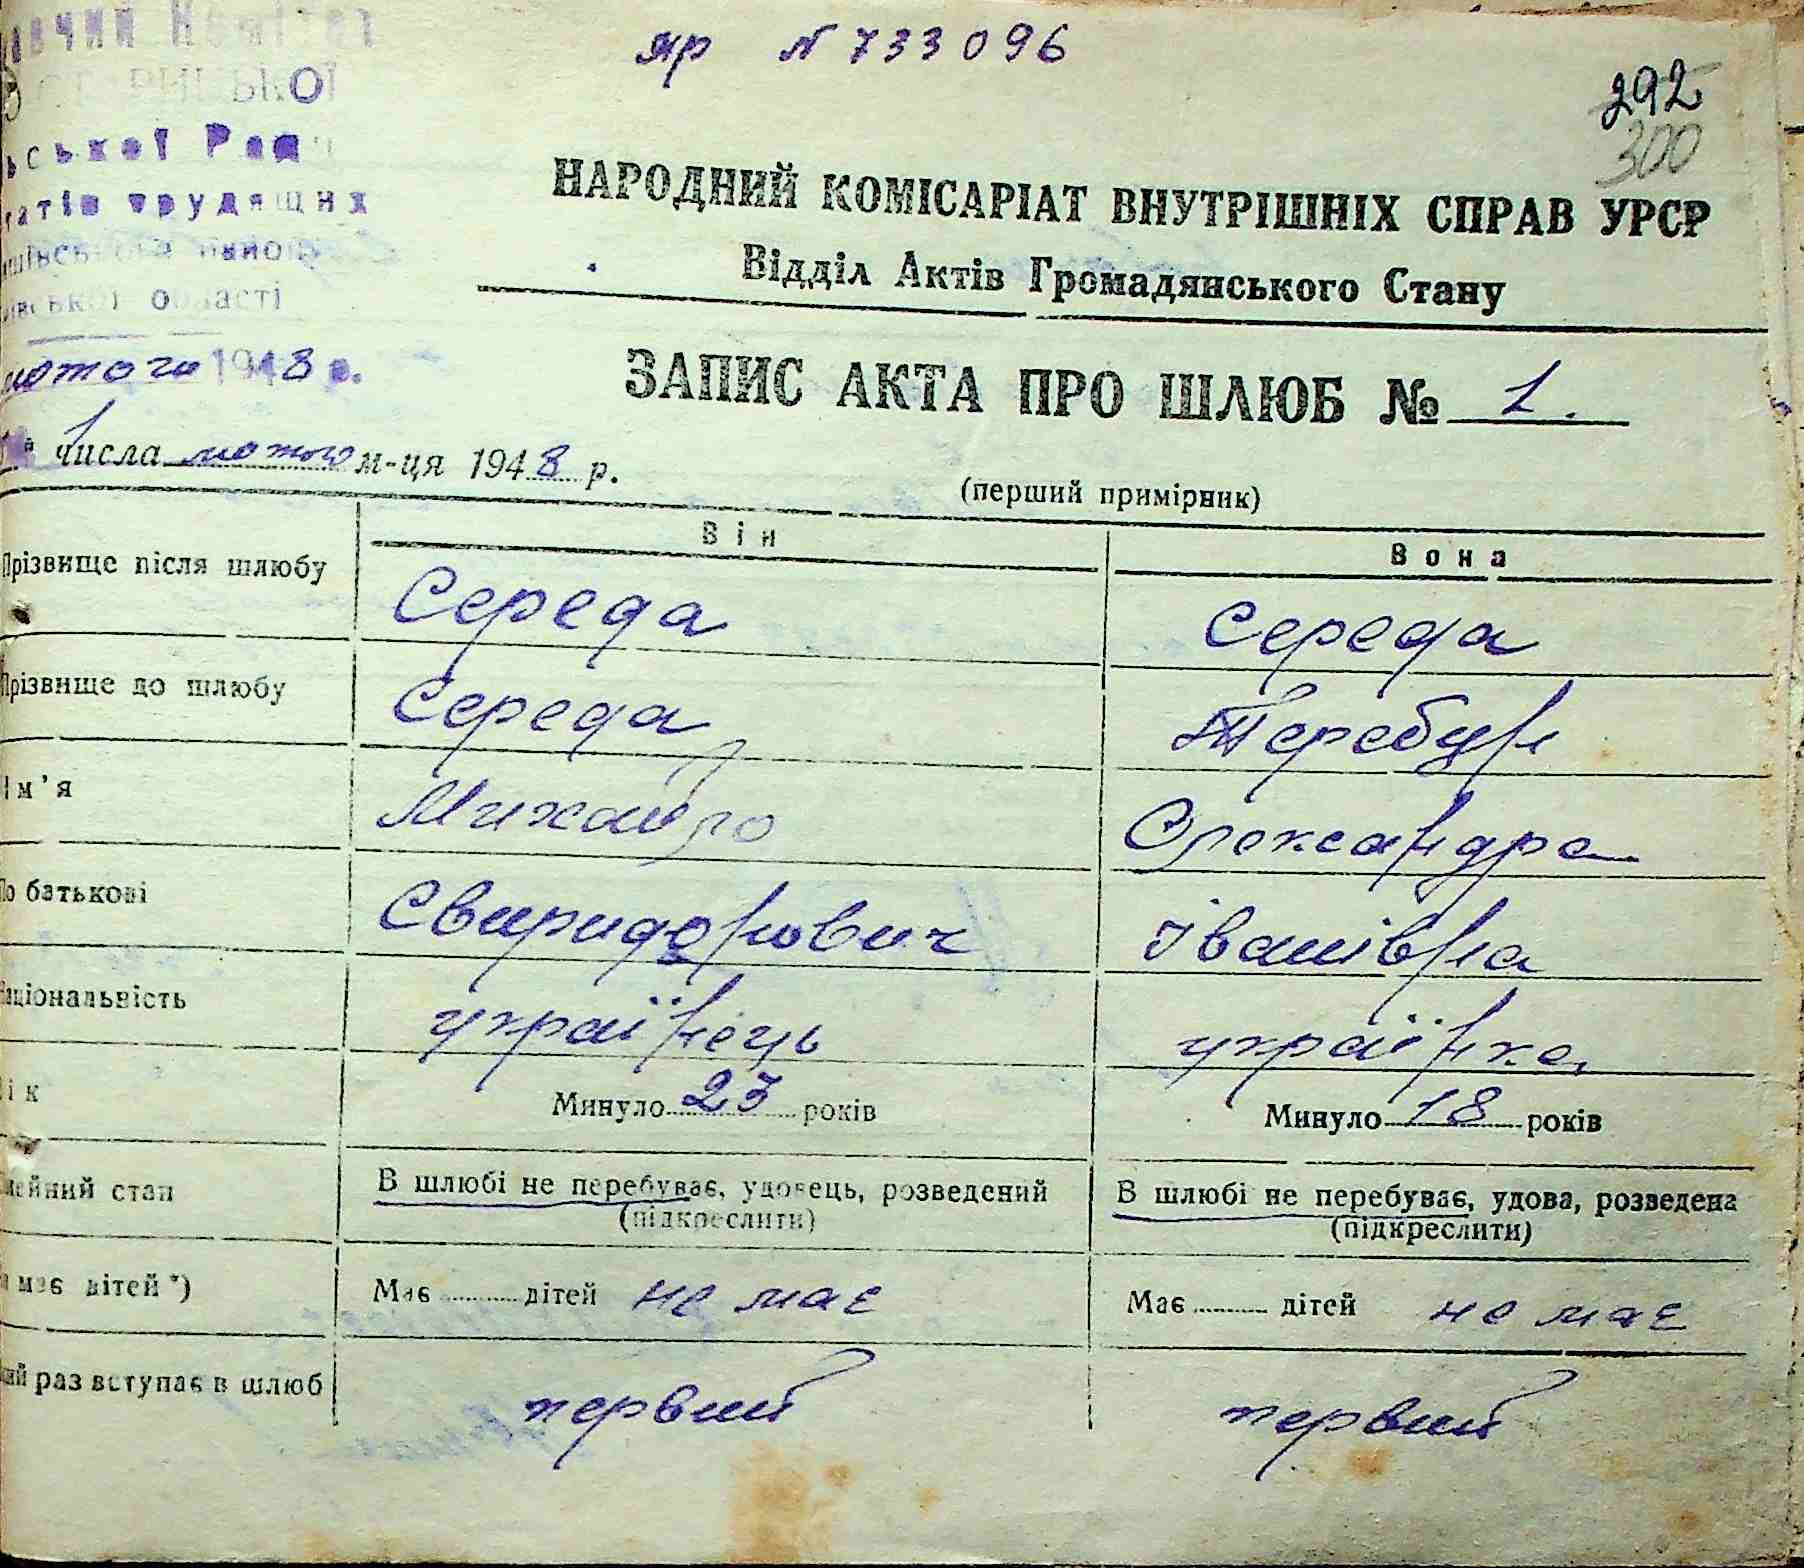 яр N 733096
292
300
вчий Комітет
ської Ради
атів трудящих
області
лютого 1948 р.
НАРОДНИЙ КОМІСАРІАТ ВНУТРІШНІХ СПРАВ УРСР
Відділ Актів Громадянського Стану
ЗАПИС АКТА ПРО ШЛЮБ № 1.
1 числа лютого м-ця 1948 р.
(перший примірник)
Він Вона
Прізвище після шлюбу Середа Середа
Прізвище до шлюбу Середа Теребун
Ім'я Михайло Олександра
По батькові Свиридонович Іванівна
Національність українець українка
Вік Минуло 23 років Минуло 18 років
мейний стан В шлюбі не перебуває, удовець, розведений В шлюбі не перебуває, удова, розведена
(підкреслити) (підкреслити)
має дітей *) Має дітей не має Має дітей не має
раз вступає в шлюб первий первий